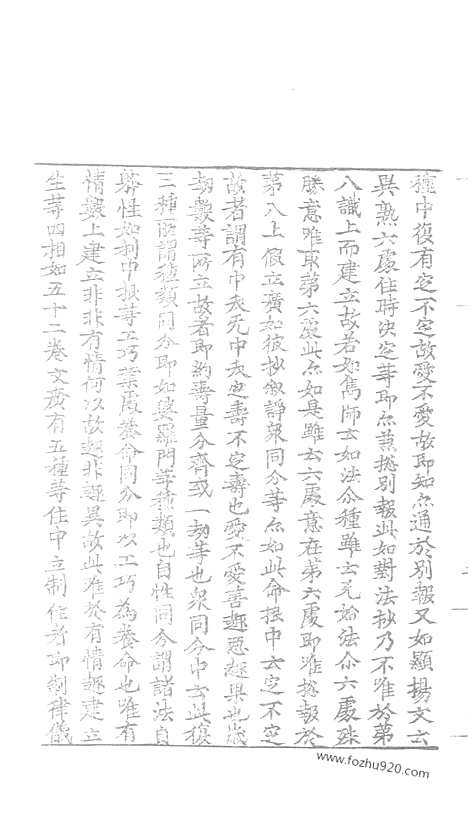 種中復有定不定故愛不愛故即知亦通於別報又如顯揚文云
異熟六處住時決定等即亦兼揔別報此如對法抄乃不唯於第
八識上而建立故若如雋師云如法尒種雖云无始法尒六處殊
勝意唯取第六處此亦如是雖云六處意在第六處即唯揔報於
第八上假立廣如彼抄叙諍衆同分等亦如此命根中云定不定
故者謂有中夭无中夭定壽不定壽也愛不愛善趣惡趣果也歲
劫數等所立故者即約壽量分齊或一劫等也衆同分中云此復
三種所謂種類同分即如婆羅門等種類也自性同分謂諸法自
體性如剎中根等工巧業處養命同分即以工巧為養命也唯有
情數上建立非非有情何以故趣非趣異故此唯於有情趣建立
生等四相如五十二卷文廣有五種等住中立制住者即制律儀
www.fozhu920.com